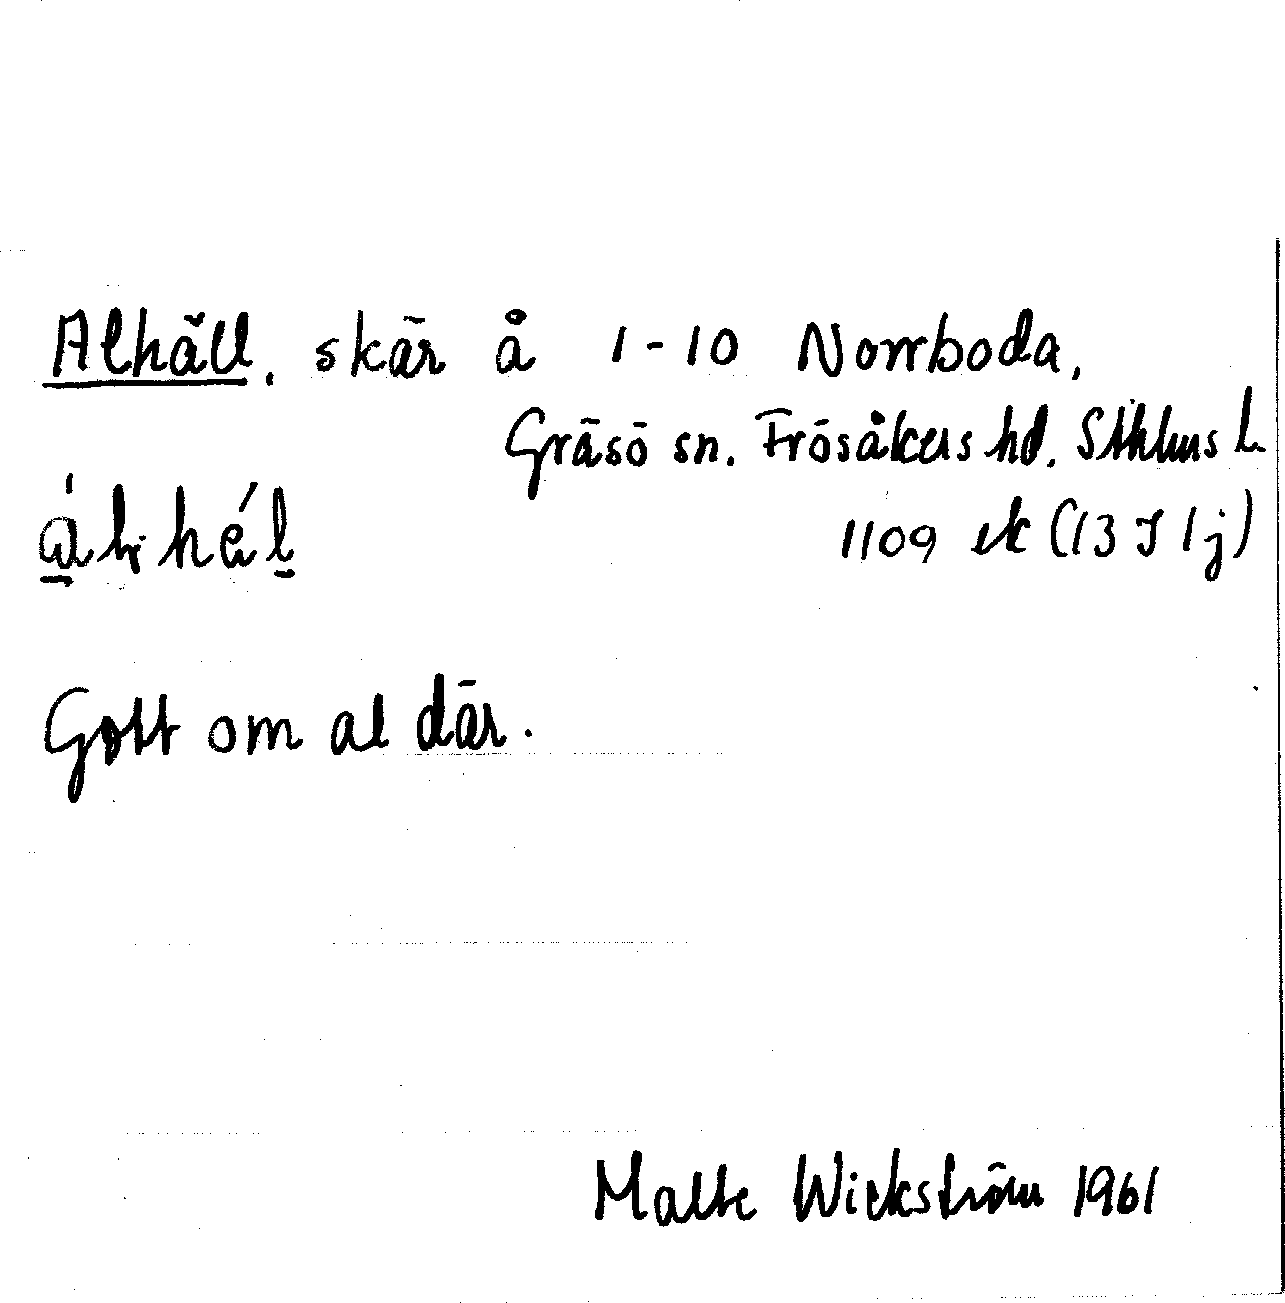 Alhäll, skär å 1-10 Norrboda,
Gräsö sn. Frösåkers hd. Sthlms L.
1109 ek (13 I 1j)
Gott om al där.
Malte Wickström 1961